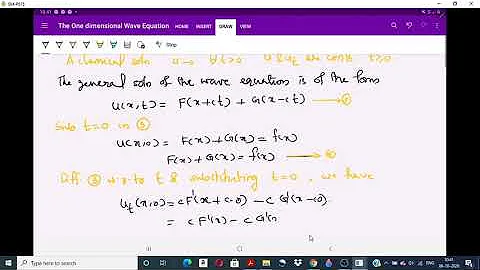 10:41
The One dimensional Wave Equation
HOME INSERT DRAW VIEW
Stop
A classical soln u→ ∀ t>0 u & u_t are conts t≥0
The general soln of the wave equation is of the form
u(x,t) = F(x+ct) + G(x-ct) →
Sub t=0 in ③
u(x,0) = F(x)+G(x) = f(x)
F(x)+G(x) = f(x) → ④
Diff ③ w.r.to t & substituting t=0, we have
u_t(x,0) = cF'(x+c·0) - c G'(x-c0).
= c F'(x) - c G'(
ENG
10:41